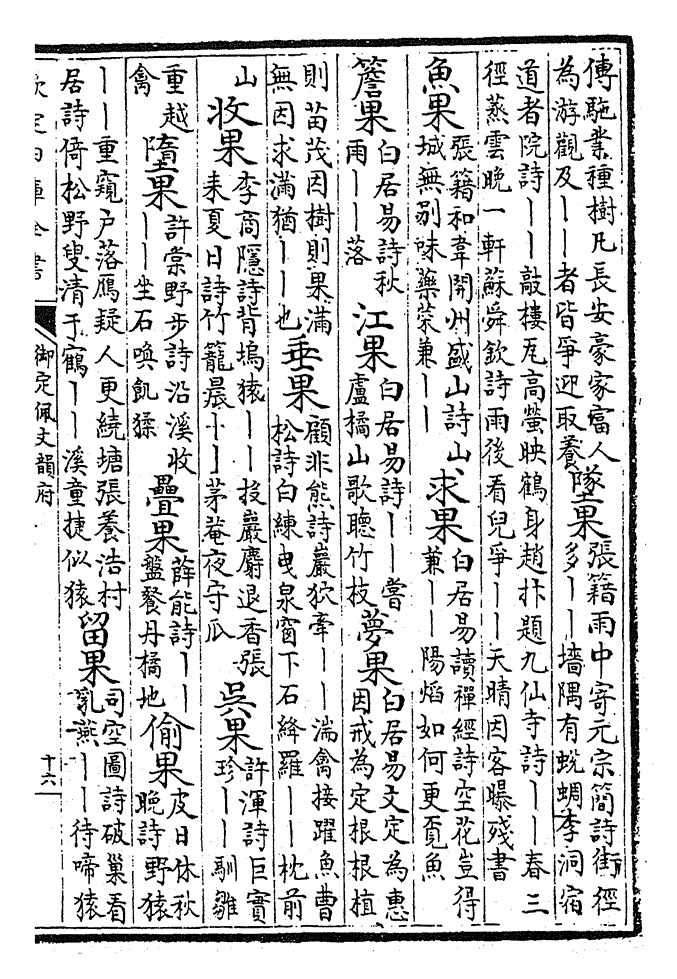 傅駞業種樹凡長安豪家富人
為游觀及——者皆爭迎取養
墜果
張籍雨中寄元宗簡詩街徑
多——墻隅有蛻蜩李洞宿
道者院詩——敲樓瓦高螢映鶴身趙抃題九仙寺詩——春三
徑蒸雲晚一軒蘇舜欽詩雨後看兒爭——天晴因客曝殘書
魚果
張籍和韋開州盛山詩山
城無别味藥茶兼——
求果
白居易讀禪經詩空花豈得
兼——陽焰如何更覓魚
簷果
白居易詩秋
雨——落
江果
白居易詩——嘗
盧橘山歌聽竹枝
夢果
白居易文定為惠
因戒為定根根植
則苗茂因樹則果滿
無因求滿猶——也
垂果
顧非熊詩巖狖牽——湍禽接躍魚曹
松詩白練曳泉窗下石絳羅——枕前
山
收果
李商隱詩背塢猿——投巖麝退香張
耒夏日詩竹籠晨——茅菴夜守瓜
吳果
許渾詩巨實
珍——馴雛
重越
禽
墮果
許棠野步詩沿溪收
——坐石喚飢猱
疊果
薛能詩——
盤餐丹橘地
偷果
皮日休秋
晚詩野猿
——重窺户落鴈疑人更繞塘張養浩村
居詩倚松野叟清于鶴——溪童捷似猿
留果
司空圖詩破巢看
乳燕——待啼猿
欽定四庫全書
御定佩文韻府
十六